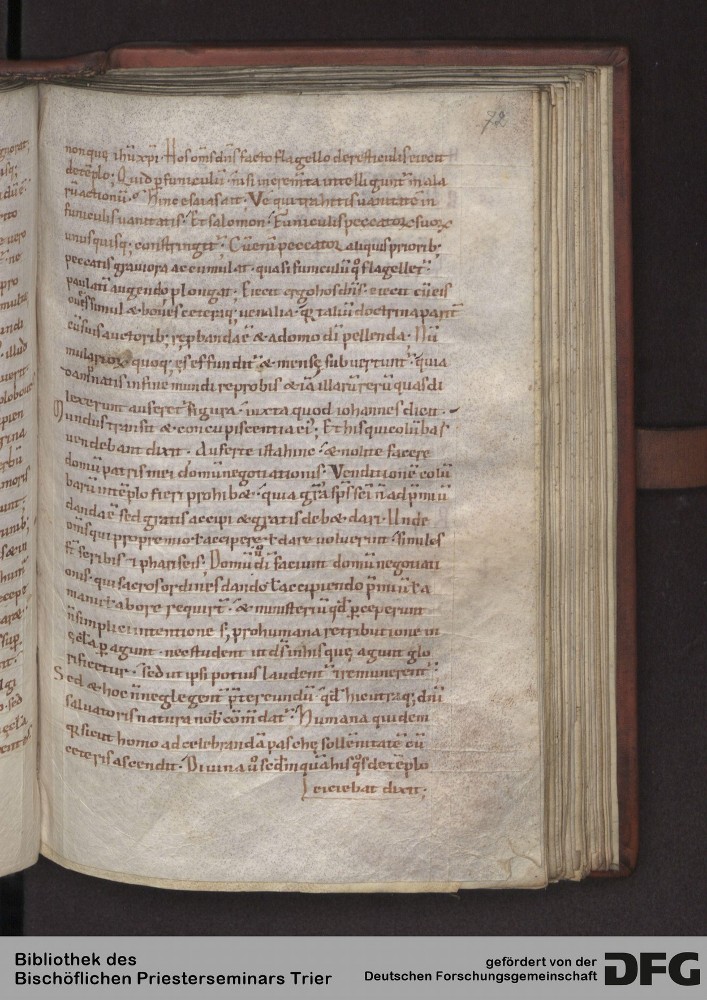 72
non quę ihu xpi. Hos om̅s dn̅s facto flagello de resticulis eiecit
de tēplo; Quid p̱ funiculū. nisi increm̅ta intelligunt̅ mala
rū actionū. Hinc esaias ait. Ve qui trahitis uanitatē in
funiculis uanitatis. Et salomon. Funiculis peccatoꝝ suoꝝ
unusquisq; constringit̅. Cū eni̅ peccator aliquis priorib;
peccatis grauiora accumulat. quasi funiculū q̊ flagellet̅
paulatī augendo plongat. Eiecit ergo hos dn̅s. eiecit cū eis
oues simul & boues ceterūq; uenalia. qr̅ taliū doctrina parit̅
cū suis auctorib; rep̱banda ē & a domo di̅ pellenda. Nū
mulariorꝝ quoq; ęs effundit̅ & mensę subuertunt̅. quia
damnatis in fine mundi reprobis & iā illarū rerū quas di
lexerunt auferet̅ figura. iuxta quod iohannes dicit.
Mundus transit & concupiscentia ei̅; Et his qui colūbas
uendebant dixit. Auferte ista hinc. & nolite facere
domū patris mei domū negotiationis. Venditionē colū
barū in tēplo fieri prohib&. quia gr̅a sp̅s sc̅i n̅ ad p̅miū
danda ē sed gratis accipi & gratis deb& dari. Unde
om̅s qui pro premio ł accipere ł dare uoluerint. similes
st̅ scribis ⁊ phariseis. Domū ů di̅ faciunt domū negotiati
onis. qui sacros ordines dando ł accipiendo p̅miū ł a
manu ł ab ore requirt̅. & ministeriū qd̅ p̱ceperunt
n̅ simplici intentione s; pro humana retributione in
ęcl̅a p̱agunt. nec student ut ds̅ in his quę agunt glo
rificetur. sed ut ipsi potius laudent̅ ⁊ remunerent̅;
Sed & hoc n̅ neglegent̅ p̅tereundū. qd̅ hic utraq; dn̅i
saluatoris natura nob̅ cōmdat̅. Humana quidem
qr̅ sicut homo ad celebrandā paschę sollēnitatē cū
ceteris ascendit. Diuina ů sed inquā his q̊s de tēplo
eiciebat dixit;
Bibliothek des
Bischöflichen Priesterseminars Trier
gefördert von der
Deutschen Forschungsgemeinschaft
DFG